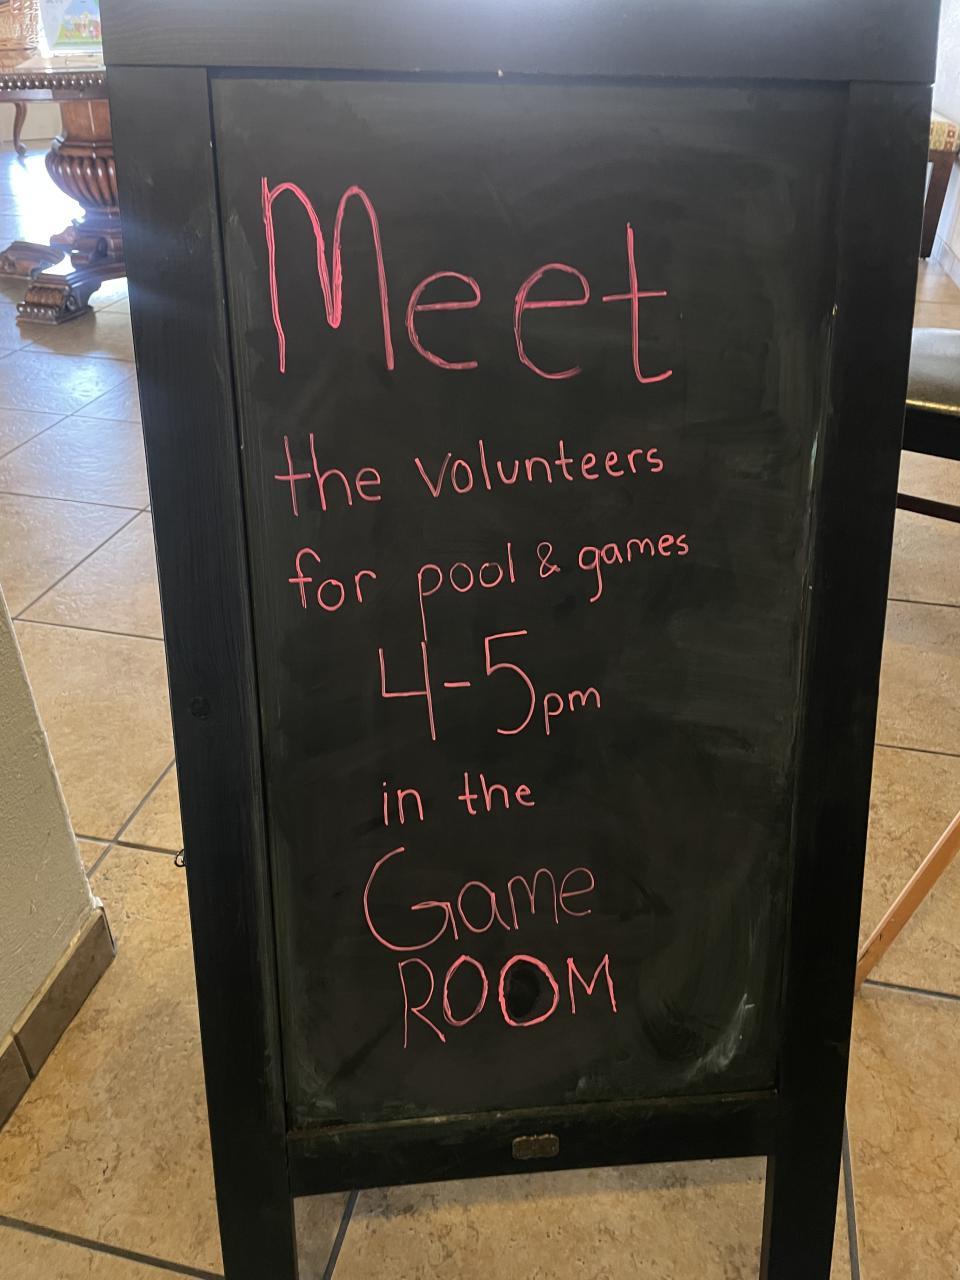 Meet
the volunteers
for pool & games
4-5pm
in the
Game
ROOM